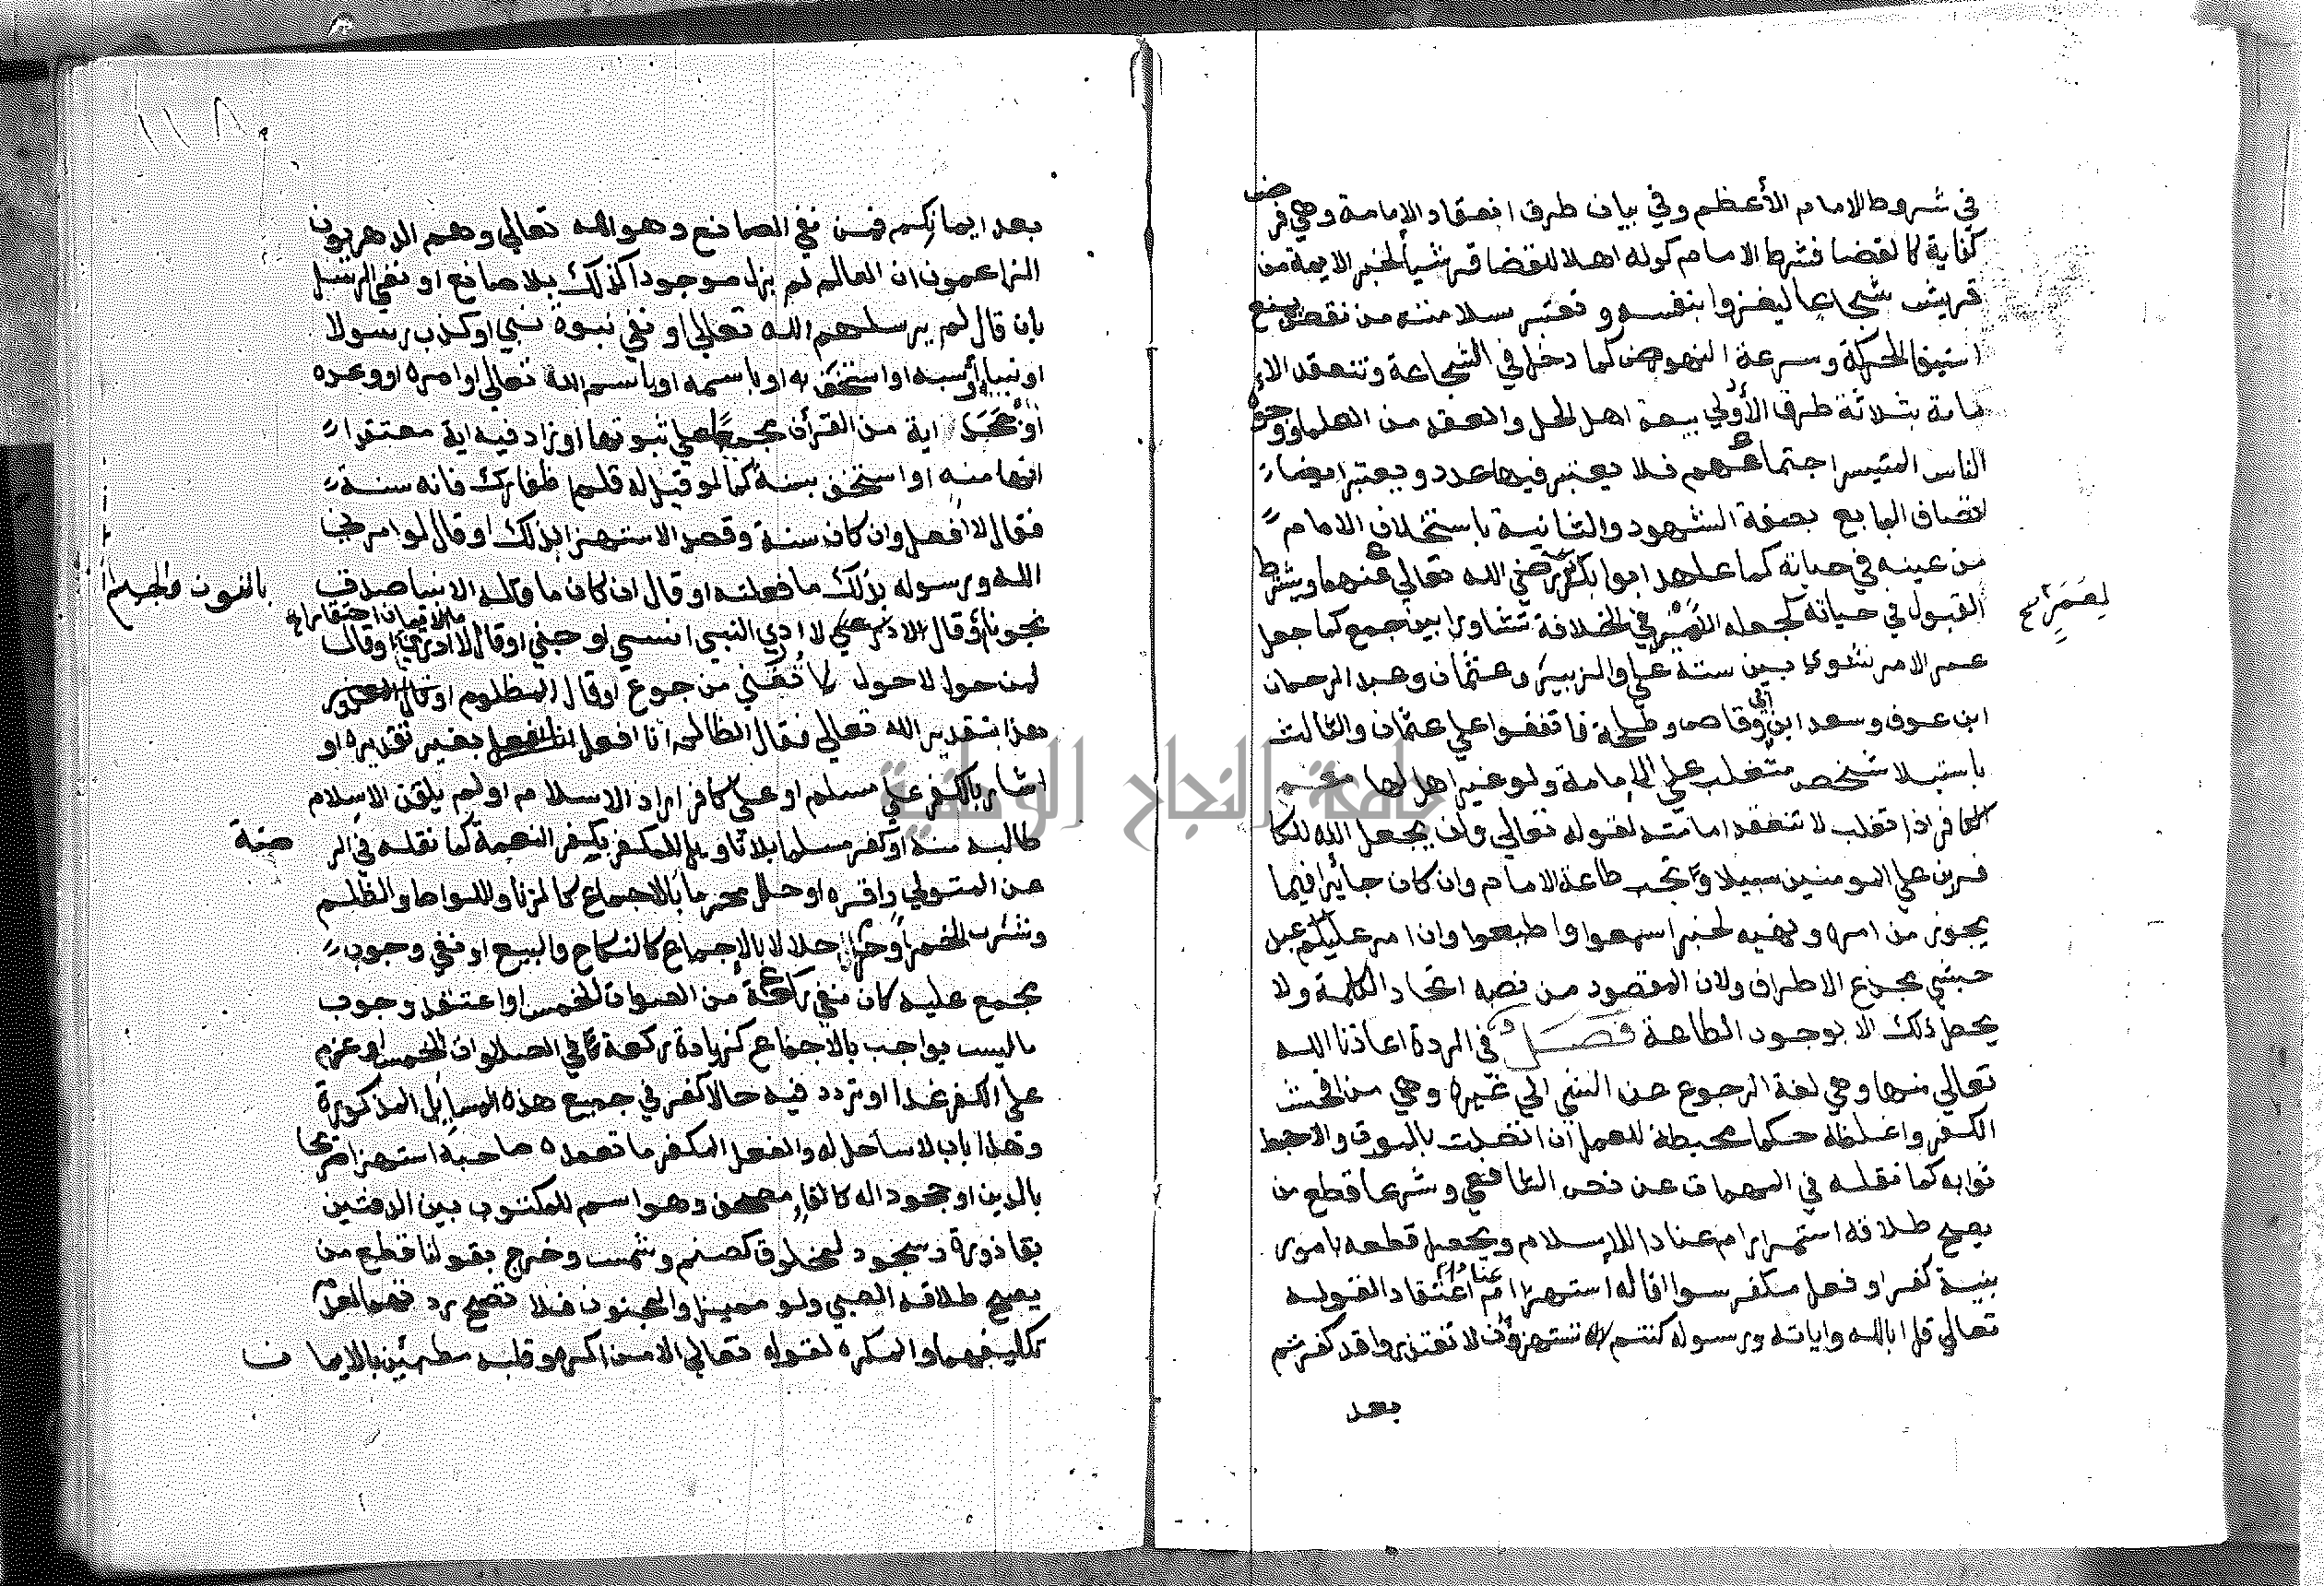 في شروط الامام الأعظم وفي بيان طرق انعقاد الإمامة وهي فرض
كفاية كالقضا فشرط الامام كونه اهلا للقضا قرشيا لخبر الايمة من
قريش شجاعا ليغزوا بنفسه وتعتبر سلامته من نقص يمنع
استيفا الحركة وسرعة النهوض كما دخل في الشجاعة وتنعقد الا
مامة بثلاثة طرق الأولي بيعة اهل الحل والعقد من العلما ووجوه
الناس المتيسر اجتماعهم فلا يعتبر فيها عدد ويعتبر ايضا
اتصاف المبايع بصفة الشهود والثانية باستخلاف الامام
من عينه في حياته كما عهد ابوا بكر لعمر رضي الله تعالي عنهما ويشترط
القبول في حياته كجعله الأمر في الخلافة تشاورا بين جمع كما جعل
عمر الامر شوري بين ستة علي والزبير وعثمان وعبد الرحمان
ابن عوف وسعد ابن أبي وقاص وطلحة فاتفقوا علي عثمان والثالث
باستيلا شخص متغلب علي الإمامة ولو غير اهل لها نعم
الكافر اذا تغلب لا تنعقد امامته لقوله تعالي ولن يجعل الله للكا
فرين علي المومنين سبيلا وتجب طاعة الامام وان كان جايرا فيما
يجوز من امره ونهيه لخبر اسمعوا واطيعوا وان امر عليكم عبد
حبشي مجدع الاطراف ولان المقصود من نصبه اتحاد الكلمة ولا
يحصل ذلك الا بوجود الطاعة فصل في الردة اعاذنا الله
تعالي منها وهي لغة الرجوع عن الشي الي غيره وهي من افحش
الكفر واغلظه حكما محبطة للعمل ان اتصلت بالموت والا حبط
ثوابه كما نقله في المهمات عن نص الشافعي وشرعا قطع من
يصح طلاقه استمرار الاسلام ويحصل قطعه بامور
بنية كفر او فعل مكفر سوا اقاله استهزا ام عنادا ام اعتقادا لقوله
تعالي قل ابالله واياته ورسوله كنتم تستهزؤن لا تعتذروا قد كفرتم
بعد
لعمر صح
بعد ايمانكم فمن نفي الصانع وهو الله تعالي وهم الدهريون
الزاعمون ان العالم لم يزل موجودا كذلك بلا صانع او نفي الرسل
بان قال لم يرسلهم الله تعالي او نفي نبوة نبي او كذب رسولا
او نبيا أو سبه او استخف به او باسمه او باسم الله تعالي او امره او وعده
أو جحد اية من القرأن مجمعا علي ثبوتها او زاد فيه اية معتقدا
انها منه او استخف بسنة كما لو قيل له قلم ظفارك فانه سنة
فقال لا افعل وان كان سنة وقصد الاستهزا بذلك او قال لو امرني
الله ورسوله بذلك ما فعلته او قال ان كان ما قاله الانبيا صدق
نجونا أو قال لا ادري النبي انسي او جني او قال لا ادري ما الايمان احتقارا او قال
لمن حول لا حول لا تغني من جوع او قال المظلوم
هذا بتقدير الله تعالي فقال الظالم انا افعل بغير تقديره او
اشار بالكفر علي مسلم او علي كافر اراد الاسلام او لم يلقن الاسلام
طالبه منه أو كفر مسلما بلا تاويل للمكفر بكفر النعمة كما نقله في الر وضة
عن المتولي واقره او حلل محرما بالاجماع كالزنا واللواط والظلم
وشرب الخمر أو حرم حلالا بالإجماع كالنكاح والبيع او نفي وجوب
مجمع عليه كان نفي ركعة من الصلوات الخمس او اعتقد وجوب
ما ليس بواجب بالاجماع كزيادة ركعة في الصلاوات الخمس او عزم
علي الكفر غدا او تردد فيه حالا كفر في جميع هذه المسايل المذكورة
وهذا باب لا ساحل له والفعل المكفر ما تعمده صاحبه استهزا صريحا
بالدين او جحودا له كالقاء مصحف وهو اسم للمكتوب بين الدفتين
بقاذورة وسجود لمخلوق كصنم وشمس وخرج بقولنا قطع من
يصح طلاقه الصبي ولو مميزا والمجنون فلا تصح ردتهما لعدم
تكليفهما والمكره لقوله تعالي الا من اكره وقلبه مطمئن بالايمان
بالنون والجيم